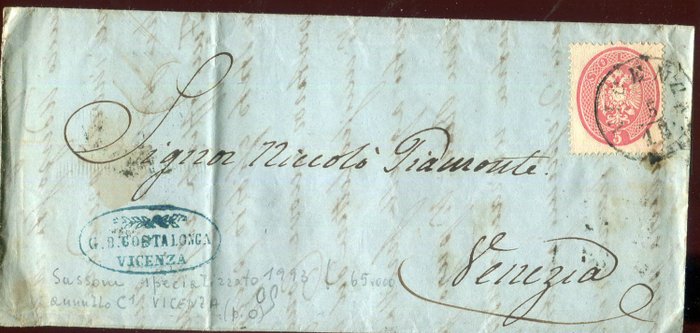 SOLDI
5
Signor Niccolò Piamonte
Venezia
G. B. COSTALONGA
VICENZA
Sassone specializzato 1993 L 65000
annullo C1 VICENZA
(p. 0)